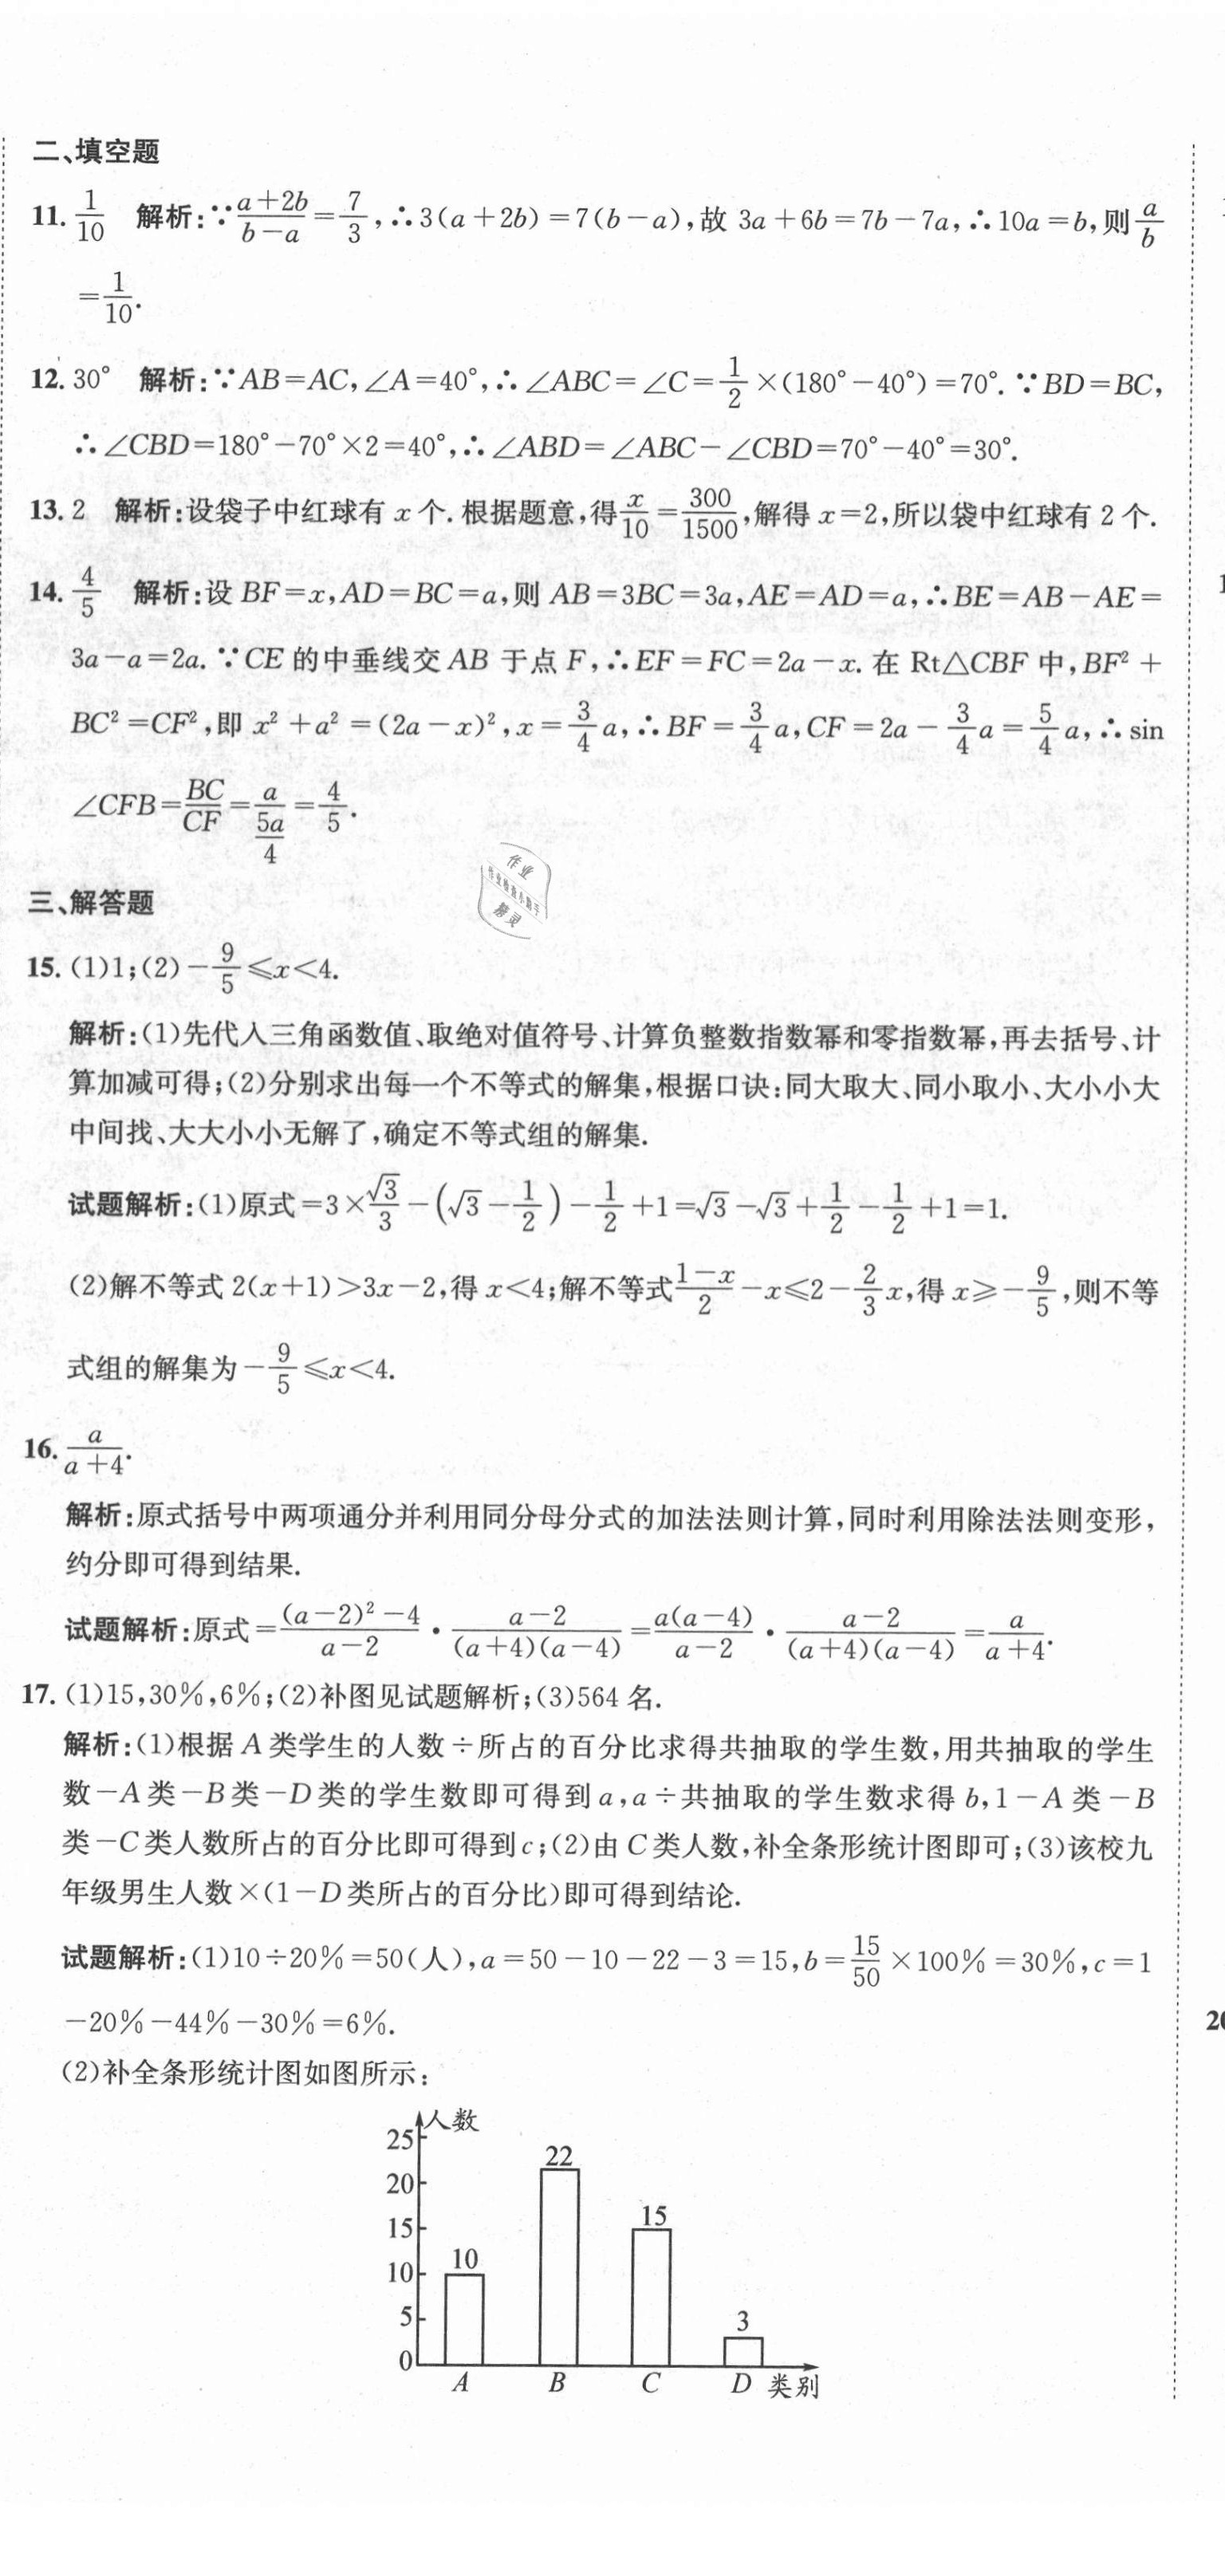 二、填空题
11. 1/10 解析:∵(a+2b)/(b-a)=7/3,∴3(a+2b)=7(b-a),故 3a+6b=7b-7a,∴10a=b,则a/b
=1/10.
12. 30° 解析:∵AB=AC,∠A=40°,∴∠ABC=∠C=1/2×(180°-40°)=70°.∵BD=BC,
∴∠CBD=180°-70°×2=40°,∴∠ABD=∠ABC-∠CBD=70°-40°=30°.
13. 2 解析:设袋子中红球有 x 个.根据题意,得x/10=300/1500,解得 x=2,所以袋中红球有 2 个.
14. 4/5 解析:设 BF=x,AD=BC=a,则 AB=3BC=3a,AE=AD=a,∴BE=AB-AE=
3a-a=2a.∵CE 的中垂线交 AB 于点 F,∴EF=FC=2a-x.在 Rt△CBF 中,BF²+
BC²=CF²,即 x²+a²=(2a-x)²,x=3/4 a,∴BF=3/4 a,CF=2a-3/4 a=5/4 a,∴sin
∠CFB=BC/CF=a/(5a/4)=4/5.
作业
作业检查小助手
精灵
三、解答题
15. (1)1;(2)-9/5≤x<4.
解析:(1)先代入三角函数值、取绝对值符号、计算负整数指数幂和零指数幂,再去括号、计
算加减可得;(2)分别求出每一个不等式的解集,根据口诀:同大取大、同小取小、大小小大
中间找、大大小小无解了,确定不等式组的解集.
试题解析:(1)原式=3×√3/3-(√3-1/2)-1/2+1=√3-√3+1/2-1/2+1=1.
(2)解不等式 2(x+1)>3x-2,得 x<4;解不等式(1-x)/2-x≤2-2/3 x,得 x≥-9/5,则不等
式组的解集为-9/5≤x<4.
16. a/(a+4).
解析:原式括号中两项通分并利用同分母分式的加法法则计算,同时利用除法法则变形,
约分即可得到结果.
试题解析:原式=((a-2)²-4)/(a-2)·(a-2)/((a+4)(a-4))=a(a-4)/(a-2)·(a-2)/((a+4)(a-4))=a/(a+4).
17. (1)15,30%,6%;(2)补图见试题解析;(3)564 名.
解析:(1)根据 A 类学生的人数÷所占的百分比求得共抽取的学生数,用共抽取的学生
数-A 类-B 类-D 类的学生数即可得到 a,a÷共抽取的学生数求得 b,1-A 类-B
类-C 类人数所占的百分比即可得到 c;(2)由 C 类人数,补全条形统计图即可;(3)该校九
年级男生人数×(1-D 类所占的百分比)即可得到结论.
试题解析:(1)10÷20%=50(人),a=50-10-22-3=15,b=15/50×100%=30%,c=1
-20%-44%-30%=6%.
(2)补全条形统计图如图所示:
人数
25
22
20
15
15
10
10
5
3
0
A B C D 类别